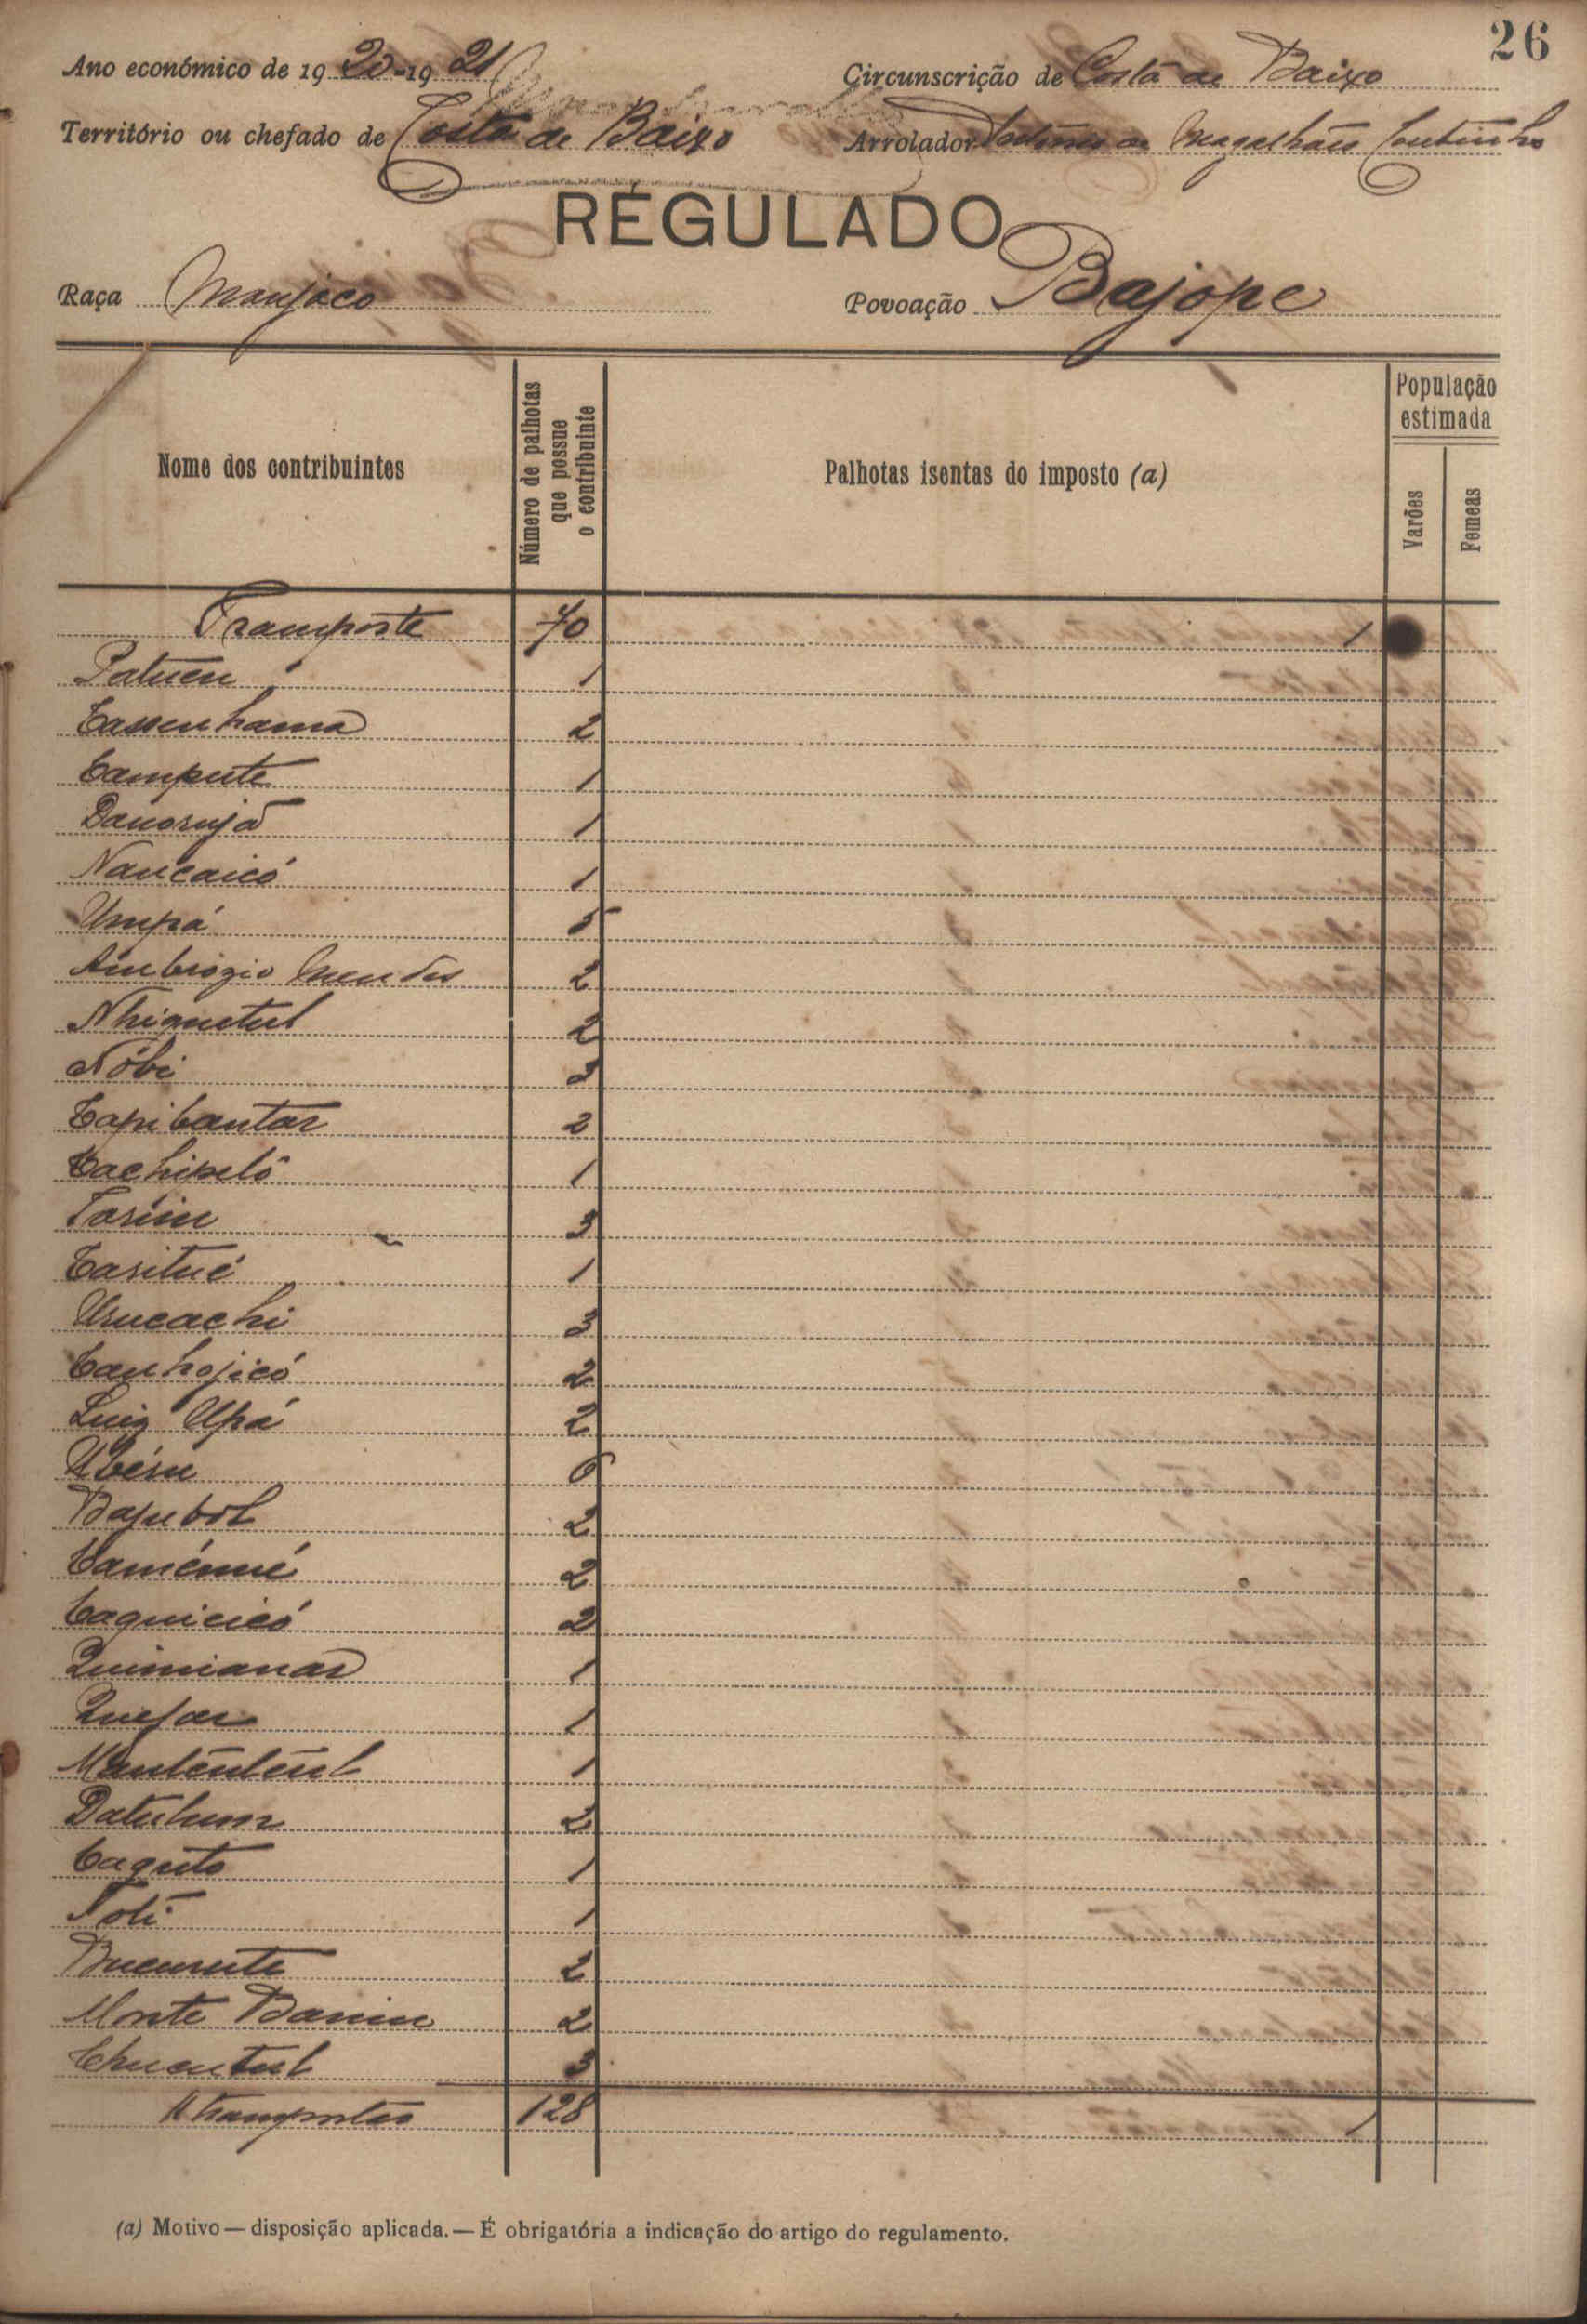 26
Ano económico de 1920-1921 Circunscrição de Costa de Baixo
Território ou chefado de Costa de Baixo Arrolador Antonio de Magalhães Coutinho
REGULADO
Raça Manjaco Povoação Bajope
Nome dos contribuintes
Número de palhotas que possue o contribuinte
Palhotas isentas do imposto (a)
População estimada
Varões
Femeas
Transporte 70 1
Patuen 1
Cassenhama 2
Campute 1
1
Naucaicó 1
Umpá 5
Ambrozio Mendes 2
Nhiquetul 2
Nóbi 3
Capibantar 2
Cachipeló 1
Torim 3
Caritué 1
Urucachi 3
Canhojicó 2
Luiz Upá 2
Ubésu 6
Bapubol 2
Caménué 2
Caquicicó 2
Quimianar 1
Quefar 1
Mantenteul 1
Datuhum 2
Caguto 1
Toti 1
Bucumte 2
Monte Banim 2
Chucutul 3
A transportar 128 1
(a) Motivo — disposição aplicada. — É obrigatória a indicação do artigo do regulamento.